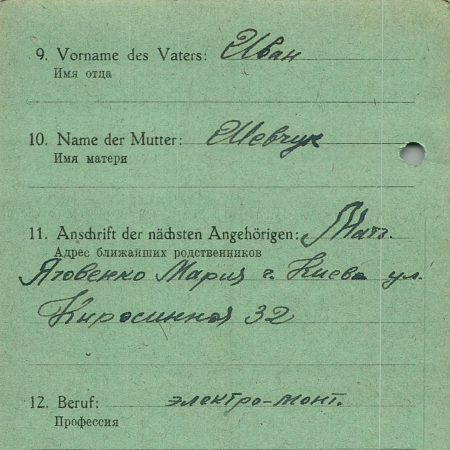 9. Vorname des Vaters: Иван
Имя отца
10. Name der Mutter: Шевчук
Имя матери
11. Anschrift der nächsten Angehörigen: Мать
Адрес ближайших родственников
Яговенко Мария г. Киев ул.
Киросинная 32
12. Beruf: электро-монт.
Профессия